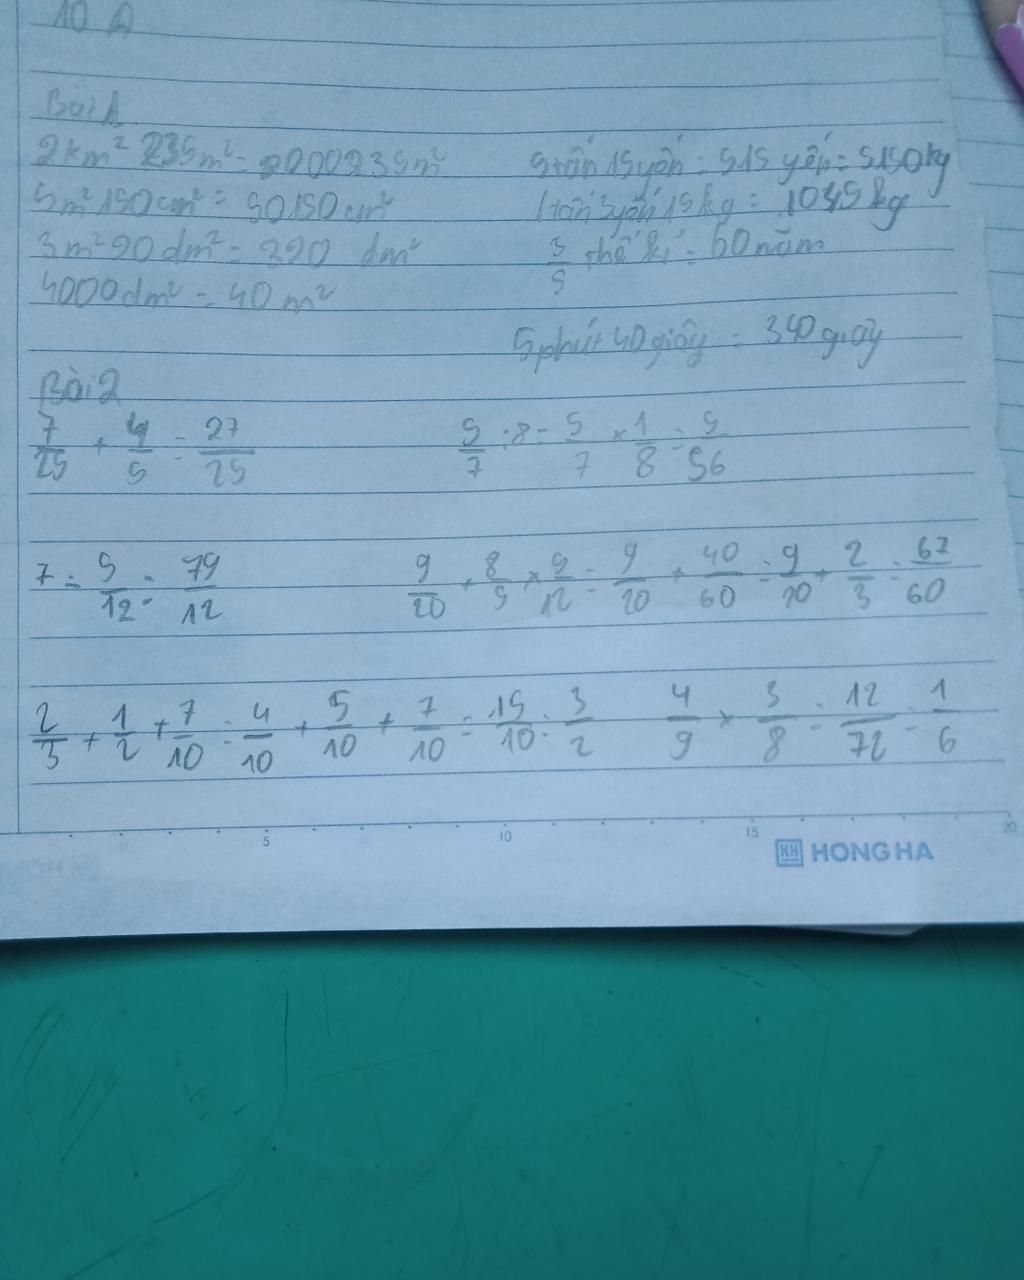 10 A
Bài 1
2km² 235m² = 2000235m²
5m² 150cm² = 50150cm²
3m² 20dm² = 320 dm²
4000dm² = 40m²
5 tấn 15 yến = 515 yến = 5150kg
1 tấn 3 yến 15kg = 1045kg
3/5 thế kỉ = 60 năm
5 phút 40 giây = 340 giây
Bài 2
7/25 + 4/5 = 27/25
5/7 : 8 = 5/7 × 1/8 = 5/56
7 - 5/12 = 79/12
9/20 + 8/5 × 5/12 = 9/20 + 40/60 = 9/20 + 2/3 = 67/60
2/3 + 1/2 + 7/10 = 4/10 + 5/10 + 7/10 = 15/10 = 3/2
4/9 × 3/8 = 12/72 = 1/6
5 10 15 20
HONG HA